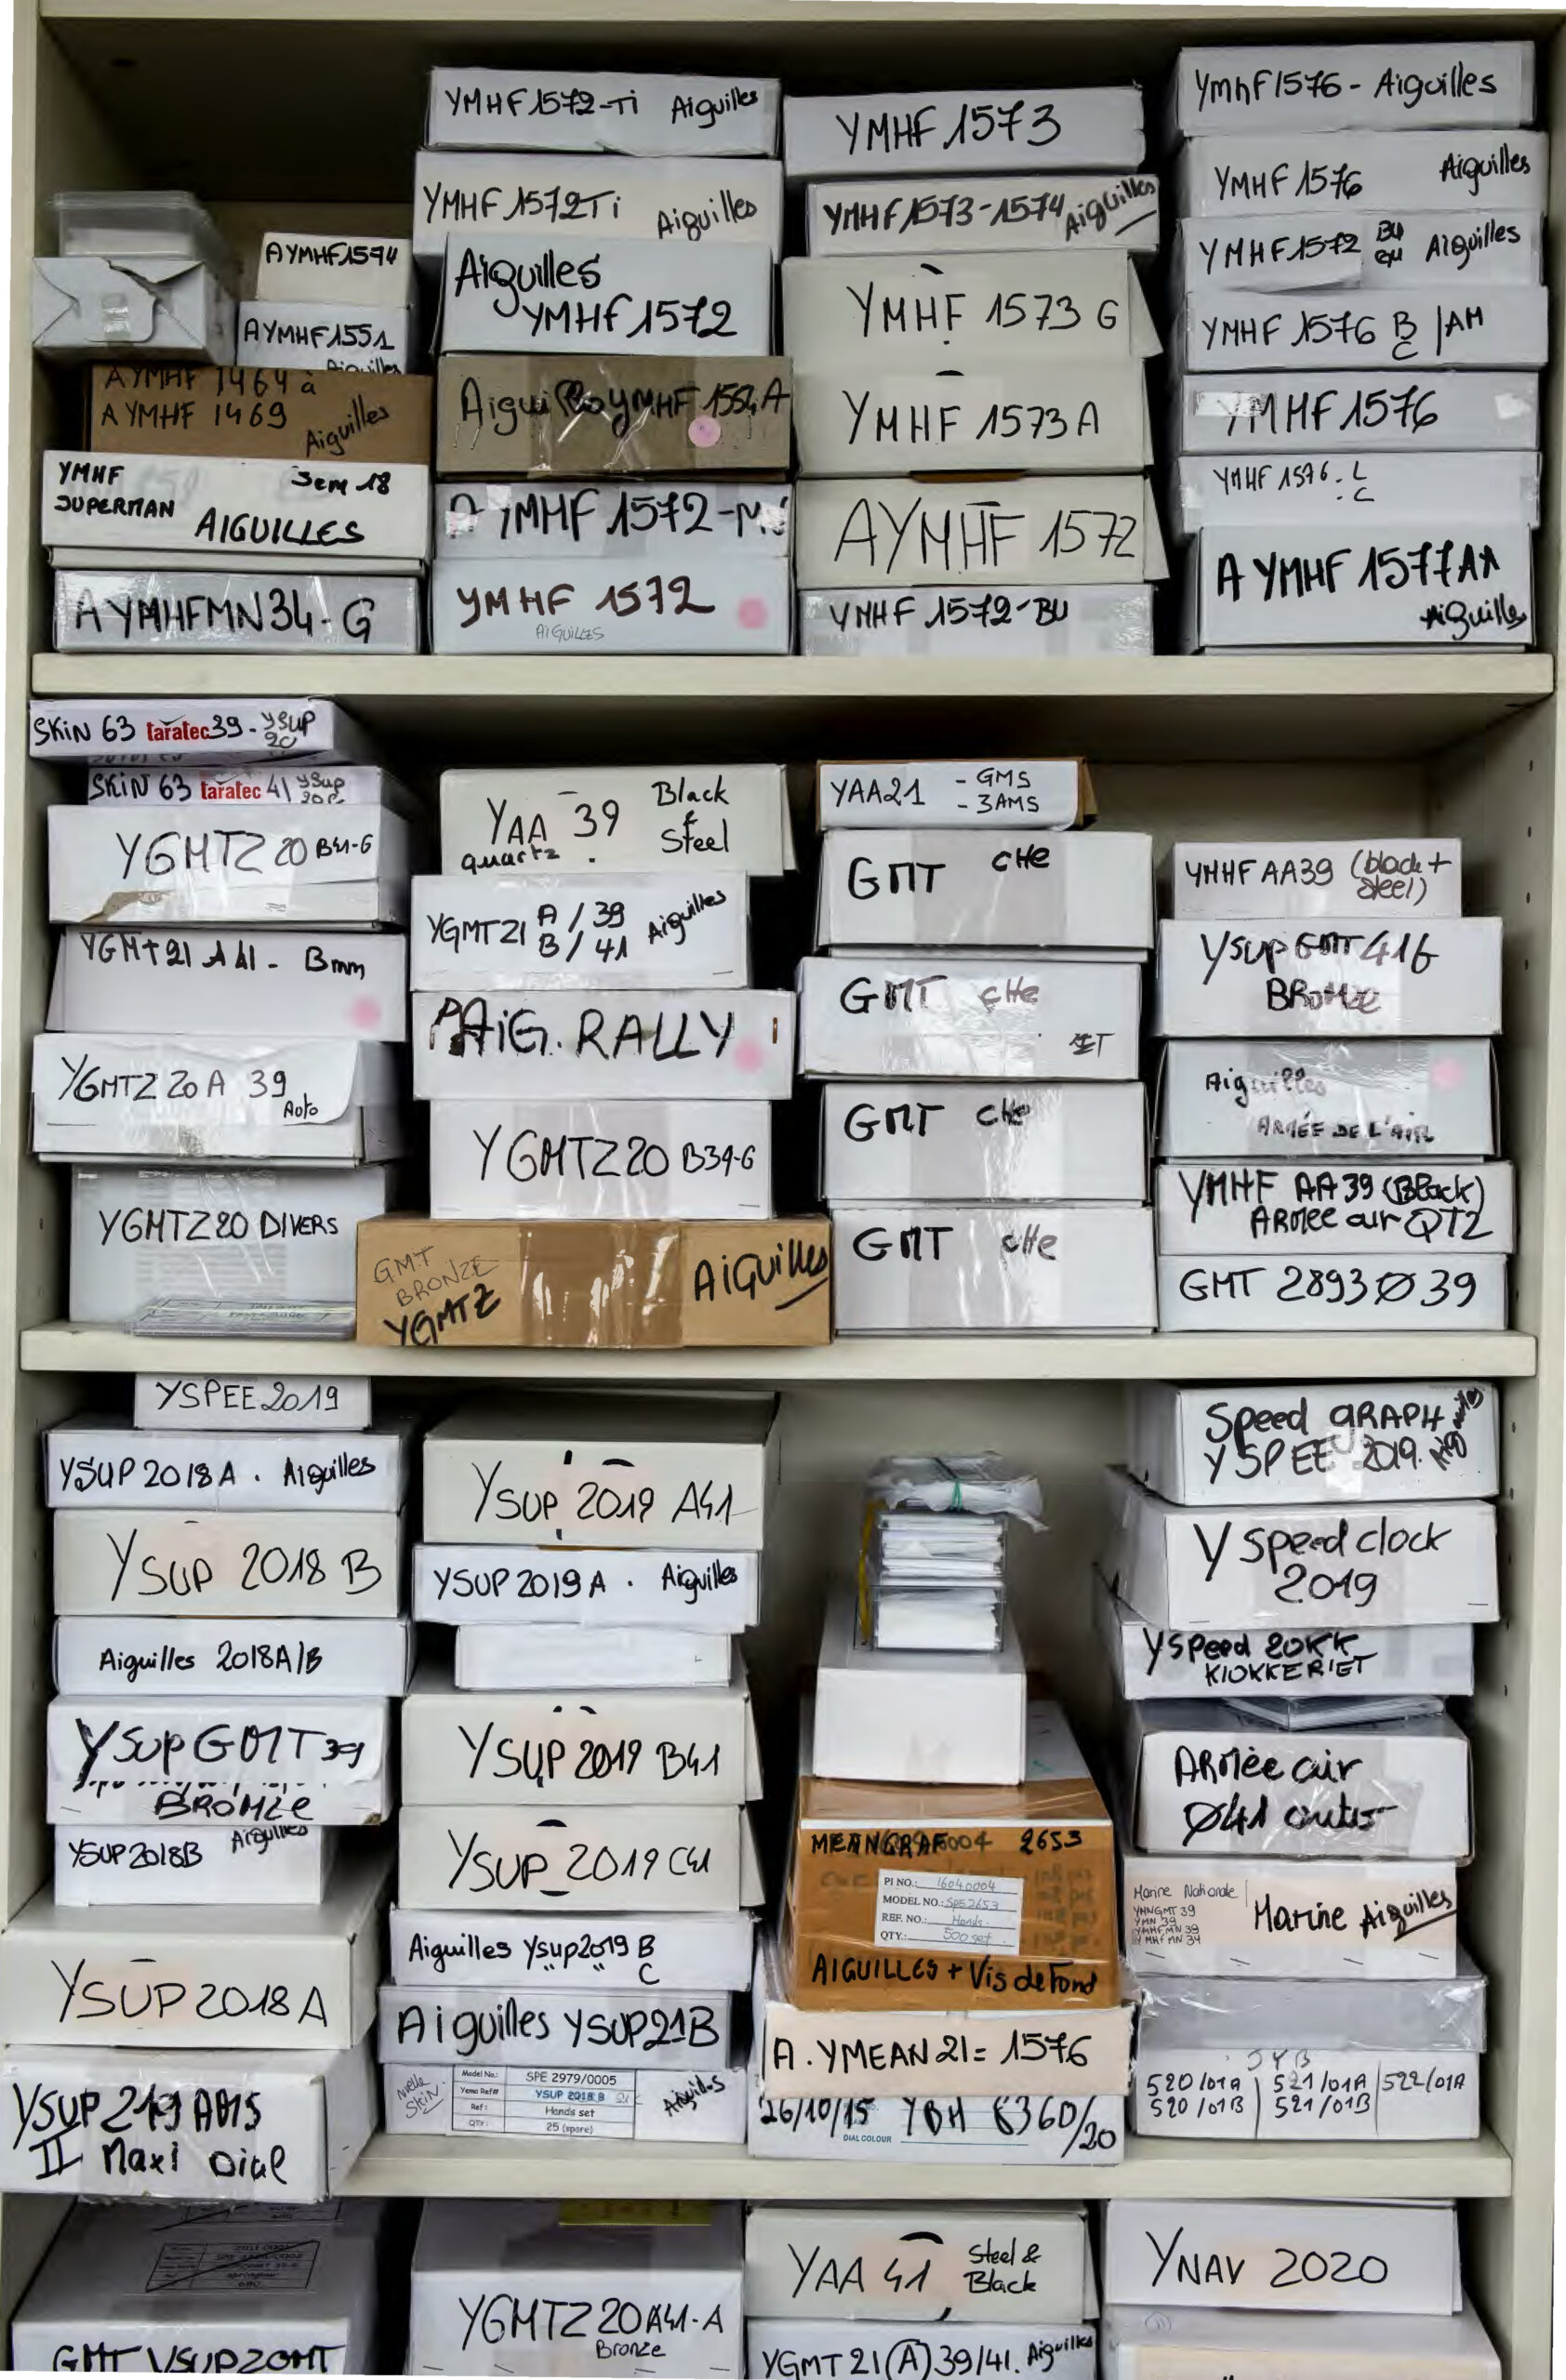 YMHF 1572-Ti Aiguilles
YMHF 1572Ti Aiguilles
Aiguilles
YMHF 1572
Aiguilles YMHF
A YMHF 1572-
YMHF 1572
AIGUILLES
AYMHF1574
AYMHF1551
Aiguilles
AYMHF 1464 à
AYMHF 1469
Aiguilles
YMHF Sem 18
SUPERMAN AIGUILLES
AYMHFMN34-G
YMHF 1573
YMHF 1573-1574 Aiguilles
YMHF 1573 G
YMHF 1573A
AYMHF 1572
YMHF 1572-BU
YmhF1576 - Aiguilles
YMHF 1576 Aiguilles
YMHF1572 BU Aiguilles
YMHF 1576 B /AM
C
YMHF 1576
YMHF 1576. L
. C
A YMHF 1577AA
Aiguilles
SKiN 63 taratec 39 - YSUP
20
SKiN 63 taratec 41 YSup
YGMTZ 20 B41-G
YGMT21 A 41 - Bmm
YGMTZ 20 A 39
Auto
YGMTZ20 DIVERS
YAA 39 Black
& Steel
quartz
YGMT21 A / 39 Aiguilles
B / 41
AiG. RALLY
YGMTZ20 B39-G
GMT
BRONZE
YGMTZ
AiGUilles
YAA21 - GMS
- 3AMS
GMT cHe
GMT cHe
GMT cHe
GMT cHe
YMHF AA39 (black +
steel)
YSUP GMT 41G
BRONZE
Aiguilles
ARMÉE DE L'AIR
YMHF AA39 (Black)
ARMée air QTZ
GMT 2893 Ø 39
YSPEE 2019
YSUP 2018A . Aiguilles
YSUP 2018 B
Aiguilles 2018A/B
YSup GMT 39
BRONZe
YSUP 2018B Aiguilles
YSUP 2018 A
II Maxi Dial
YSUP 2019 A41
YSUP 2019 A . Aiguilles
YSUP 2019 B41
YSUP 2019 C41
Aiguilles Ysup2019 B
" " C
Aiguilles YSUP21B
Model No.: SPE 2979/0005
Yema Ref# YSUP 2018 B
Ref: Hands set
QTY: 25 (spare)
Aiguilles
MEANGRAF 2653
PI NO.: 16040004
MODEL NO.: SPE2653
REF. NO.: Hands
QTY.: 500 set
AIGUILLES + Vis de Fond
A. YMEAN 21 = 1576
26/10/15 YBH 8360/20
DIAL COLOUR
Speed GRAPH
YSPEE 2019. Aiguilles
Y Speed clock
2019
YSpeed 20KK
KLOKKERIET
ARMée air
Ø41 auto
Marine Nationale
YMNGMT 39
YMN 39
YMHFMN 39
YMHFMN 34
Marine Aiguilles
520/01A 521/01A 522/01A
520/01B 521/01B
GMT YSUP20MT
YGMTZ 20A41-A
Bronze
YAA 41 Steel &
Black
YGMT 21(A)39/41. Aiguilles
YNAV 2020